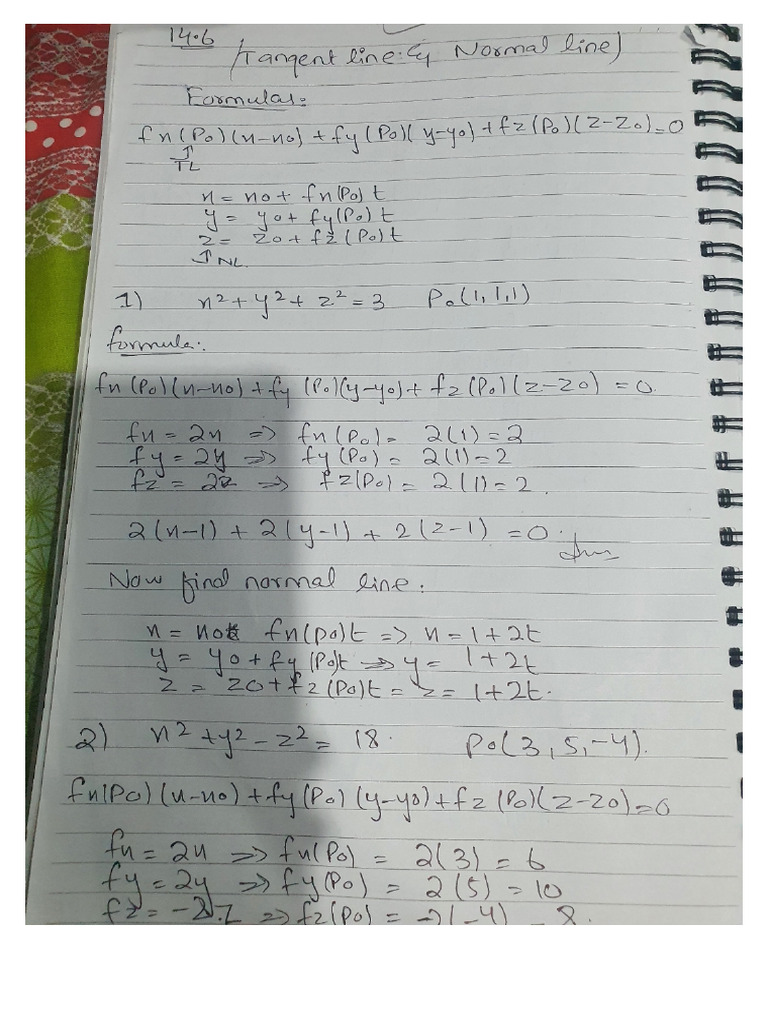 14.6
(Tangent line & Normal line)
Formulas:
fx(P0)(x-x0)+fy(P0)(y-y0)+fz(P0)(z-z0)=0
↑
TL
x = x0+ fx(P0)t
y = y0+fy(P0)t
z = z0+fz(P0)t
↑ NL.
1) x²+y²+z²=3 P0(1,1,1)
formula:.
fx(P0)(x-x0)+fy(P0)(y-y0)+fz(P0)(z-z0)=0.
fx = 2x => fx(P0)= 2(1)=2
fy = 2y => fy(P0)= 2(1)=2
fz = 2z => fz(P0)= 2(1)=2.
2(x-1)+2(y-1)+2(z-1)=0.
Ans
Now find normal line:
x = x0+ fx(P0)t => x=1+2t
y = y0+fy(P0)t => y= 1+2t
z = z0+fz(P0)t = z= 1+2t.
2) x²+y²-z²= 18. P0(3,5,-4).
fx(P0)(x-x0)+fy(P0)(y-y0)+fz(P0)(z-z0)=0
fx = 2x => fx(P0) = 2(3)=6
fy = 2y => fy(P0) = 2(5)=10
fz = -2z => fz(P0)= -2(-4) = 8.